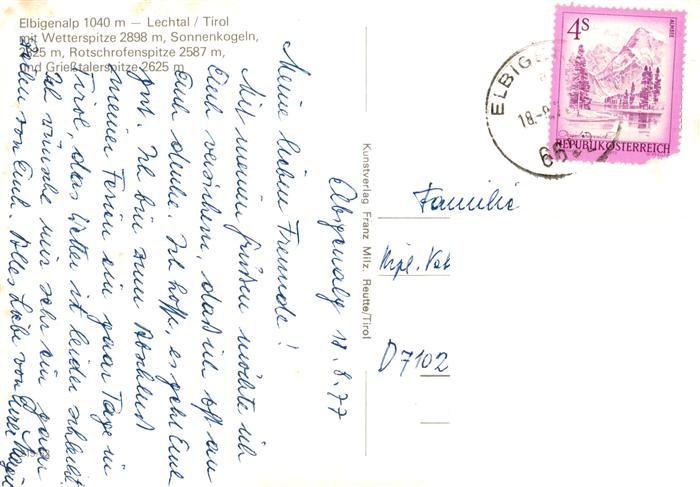 Elbigenalp 1040 m — Lechtal / Tirol
mit Wetterspitze 2898 m, Sonnenkogeln,
m, Rotschrofenspitze 2587 m,
und Grießtalerspitze 2625 m
4 S
ALMSEE
REPUBLIK ÖSTERREICH
ELBIGE
18.-8.
66
Kunstverlag Franz Milz, Reutte/Tirol
Elbigenalp 18.8.77
Meine lieben Freunde!
Mit meinen Grüßen möchte ich
Euch versichern, daß ich oft an
Euch denke. Ich hoffe, es geht Euch
gut. Ich bin zum Abschluß
meiner Ferien ein paar Tage in
Tirol, das Wetter ist leider schlecht.
Ich wünsche mir sehr ein paar
Zeilen von Euch. Alles Liebe von Eurer
Familie
Dipl.
D 7102